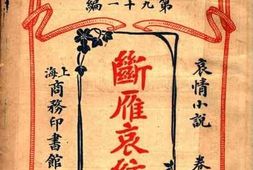 第九十一編
哀情小說
卷
斷雁哀絃
上海
商務印書館